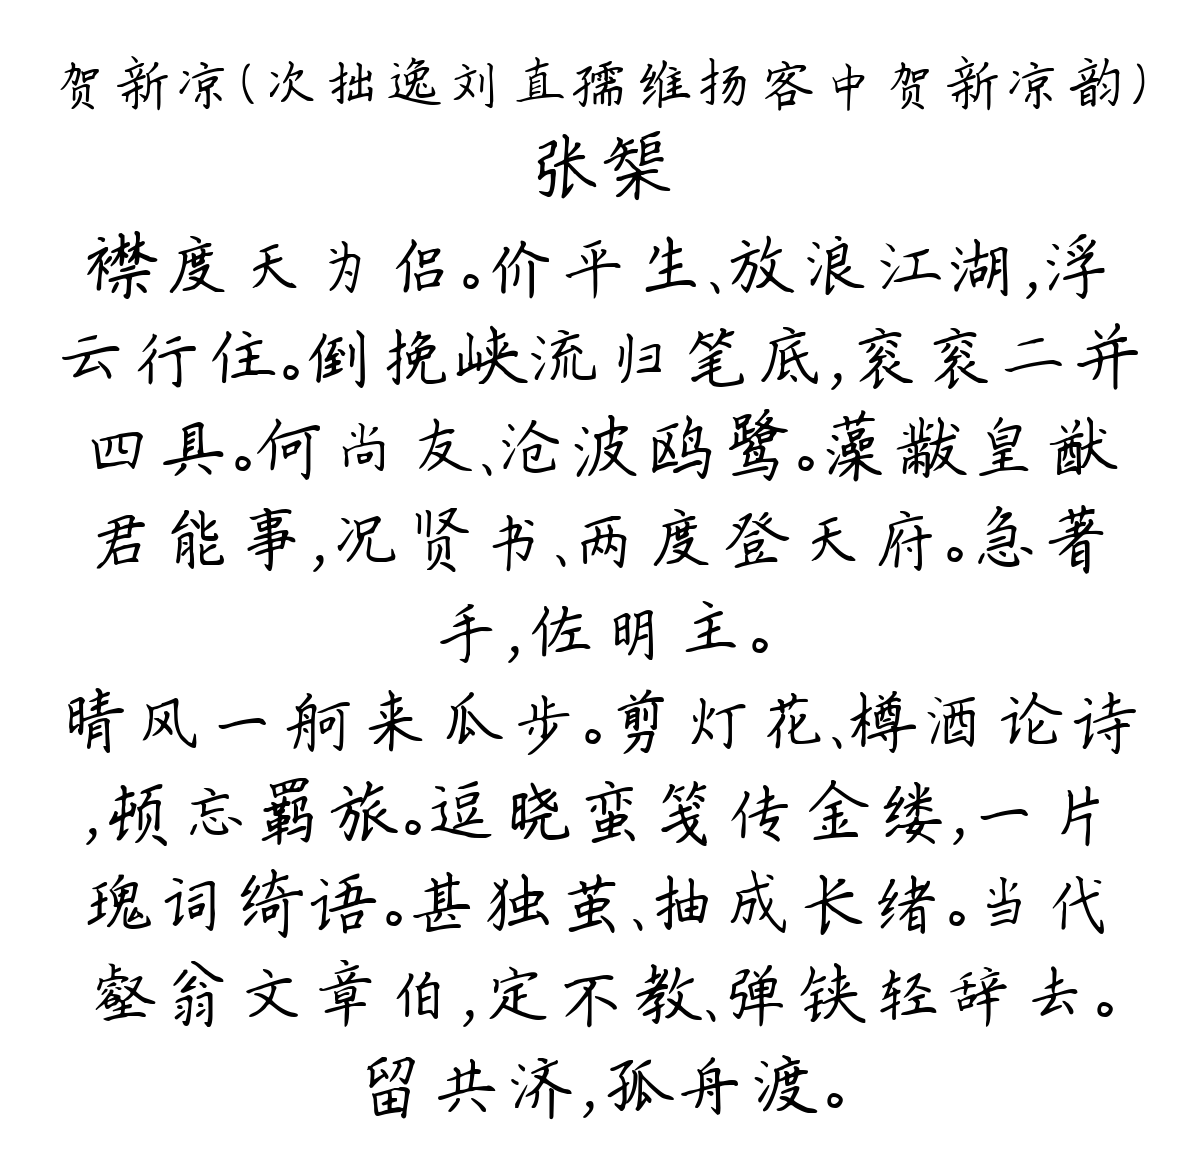 贺新凉(次拙逸刘直孺维扬客中贺新凉韵)
张榘
襟度天为侣。价平生、放浪江湖,浮
云行住。倒挽峡流归笔底,衮衮二并
四具。何尚友、沧波鸥鹭。藻黻皇猷
君能事,况贤书、两度登天府。急著
手,佐明主。
晴风一舸来瓜步。剪灯花、樽酒论诗
,顿忘羁旅。逗晓蛮笺传金缕,一片
瑰词绮语。甚独茧、抽成长绪。当代
壑翁文章伯,定不教、弹铗轻辞去。
留共济,孤舟渡。